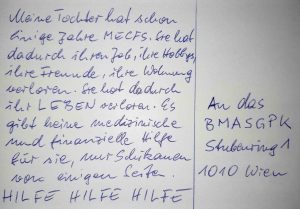 Meine Tochter hat schon
einige Jahre MECFS. Sie hat
dadurch ihren Job, ihre Hobbys,
ihre Freunde, ihre Wohnung
verloren. Sie hat dadurch
ihr LEBEN verloren. Es
gibt keine medizinische
und finanzielle Hilfe
für sie, nur Schikanen
von einigen Seiten.
HILFE HILFE HILFE
An das
BMASGPK
Stubenring 1
1010 Wien